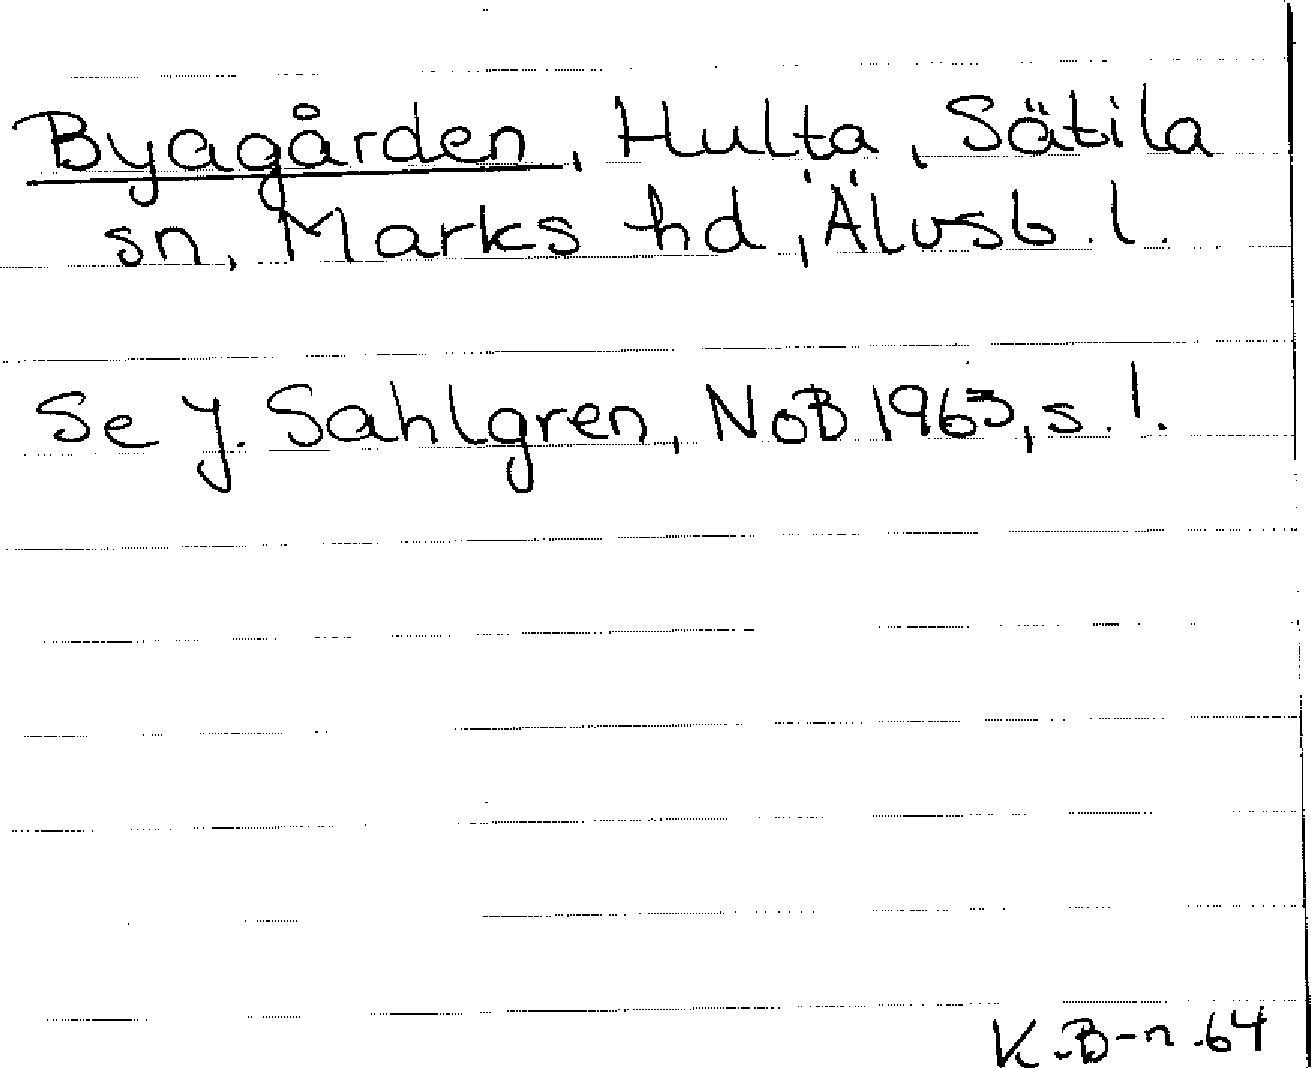 Byagården, Hulta, Sätila
sn, Marks hd, Älvsb. l.
Se J. Sahlgren, NoB 1963, s. 1.
K.B-n.64